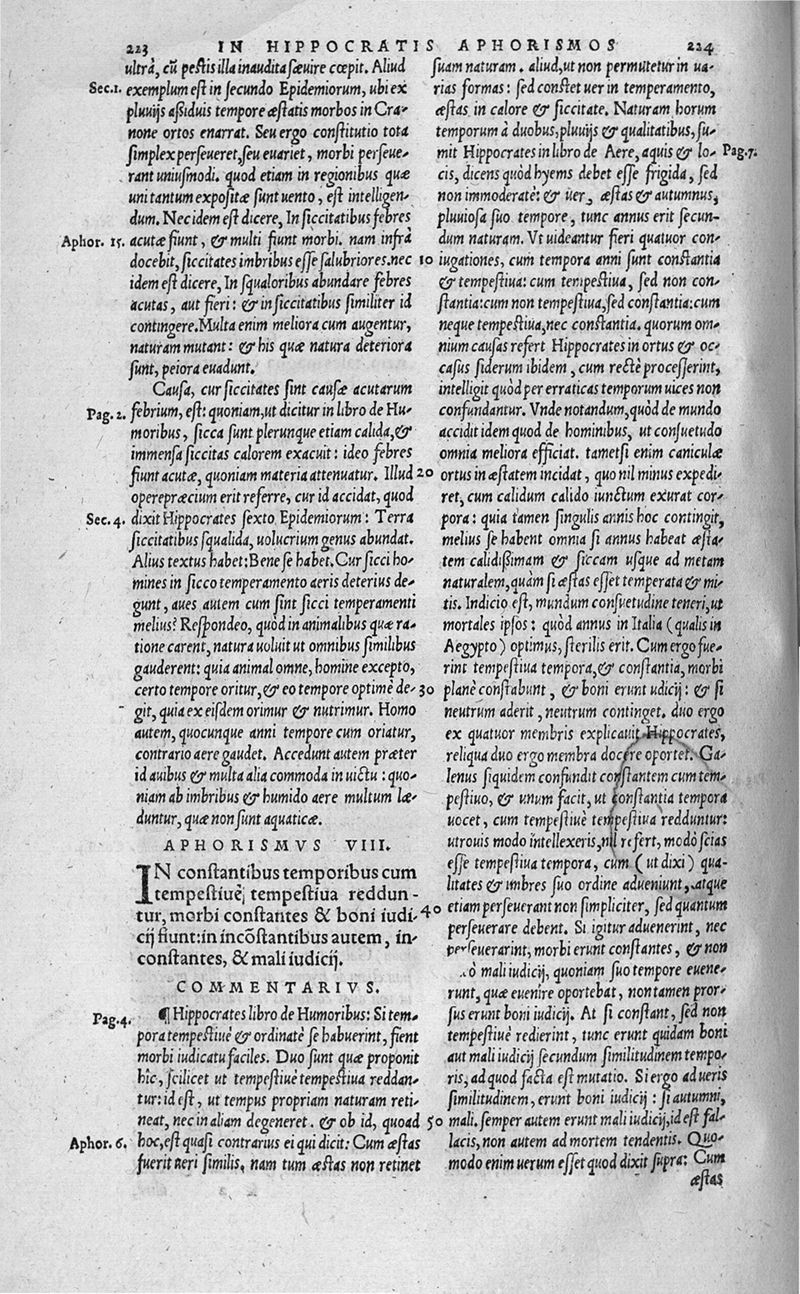 223 IN HIPPOCRATIS APHORISMOS 224
ultrà, cũ pestis illa inaudita sæuire cœpit. Aliud
Sec.1. exemplum est in secundo Epidemiorum, ubi ex
pluuijs aßiduis tempore æstatis morbos in Cra-
none ortos enarrat. Seu ergo constitutio tota
simplex perseueret, seu euariet, morbi perseue-
rant uniusmodi. quod etiam in regionibus quæ
uni tantum expositæ sunt uento, est intelligen-
dum. Nec idem est dicere, In siccitatibus febres
Aphor. 15. acutæ fiunt, & multi fiunt morbi. nam infrà
docebit, siccitates imbribus esse salubriores. nec
idem est dicere, In squaloribus abundare febres
acutas, aut fieri: & in siccitatibus similiter id
contingere. Multa enim meliora cum augentur,
naturam mutant: & his quæ natura deteriora
sunt, peiora euadunt.
Causa, cur siccitates sint causæ acutarum
Pag. 2. febrium, est: quoniam, ut dicitur in libro de Hu-
moribus, sicca sunt plerunque etiam calida, &
immensa siccitas calorem exacuit: ideo febres
fiunt acutæ, quoniam materia attenuatur. Illud
operepræcium erit referre, cur id accidat, quod
Sec. 4. dixit Hippocrates sexto Epidemiorum: Terra
siccitatibus squalida, uolucrium genus abundat.
Alius textus habet: Bene se habet. Cur sicci ho-
mines in sicco temperamento aeris deterius de-
gunt, aues autem cum sint sicci temperamenti
melius? Respondeo, quòd in animalibus quæ ra-
tione carent, natura uoluit ut omnibus similibus
gauderent: quia animal omne, homine excepto,
certo tempore oritur, & eo tempore optimè de-
git, quia ex eisdem orimur & nutrimur. Homo
autem, quocunque anni tempore cum oriatur,
contrario aere gaudet. Accedunt autem præter
id auibus & multa alia commoda in uictu: quo-
niam ab imbribus & humido aere multum læ-
duntur, quæ non sunt aquaticæ.
APHORISMVS VIII.
IN constantibus temporibus cum
tempestiuè, tempestiua reddun-
tur, morbi constantes & boni iudi-
cij fiunt: in incõstantibus autem, in-
constantes, & mali iudicij.
COMMENTARIVS.
Pag. 4. ¶ Hippocrates libro de Humoribus: Si tem-
pora tempestiuè & ordinatè se habuerint, fient
morbi iudicatu faciles. Duo sunt quæ proponit
hîc, scilicet ut tempestiuè tempestiua reddan-
tur: id est, ut tempus propriam naturam reti-
neat, nec in aliam degeneret. & ob id, quoad
Aphor. 6. hoc, est quasi contrarius ei qui dicit: Cum æstas
fuerit ueri similis, nam tum æstas non retinet
suam naturam. aliud, ut non permutetur in ua-
rias formas: sed constet uer in temperamento,
æstas in calore & siccitate. Naturam horum
temporum à duobus, pluuijs & qualitatibus, su-
mit Hippocrates in libro de Aere, aquis & lo- Pag. 7.
cis, dicens quòd hyems debet esse frigida, sed
non immoderatè: & uer, æstas & autumnus,
pluuiosa suo tempore, tunc annus erit secun-
dum naturam. Vt uideantur fieri quatuor con-
10 iugationes, cum tempora anni sunt constantia
& tempestiua: cum tempestiua, sed non con-
stantia: cum non tempestiua, sed constantia: cum
neque tempestiua, nec constantia. quorum om-
nium causas refert Hippocrates in ortus & oc-
casus siderum ibidem, cum rectè processerint,
intelligit quòd per erraticas temporum uices non
confundantur. Vnde notandum, quòd de mundo
accidit idem quod de hominibus, ut consuetudo
omnia meliora efficiat. tametsi enim caniculæ
20 ortus in æstatem incidat, quo nil minus expedi-
ret, cum calidum calido iunctum exurat cor-
pora: quia tamen singulis annis hoc contingit,
melius se habent omnia si annus habeat æsta-
tem calidißimam & siccam usque ad metam
naturalem, quàm si æstas esset temperata & mi-
tis. Indicio est, mundum consuetudine teneri, ut
mortales ipsos: quòd annus in Italia (qualis in
Aegypto) optimus, sterilis erit. Cum ergo fue-
rint tempestiua tempora, & constantia, morbi
30 planè constabunt, & boni erunt iudicij: & si
neutrum aderit, neutrum continget. duo ergo
ex quatuor membris explicauit Hippocrates,
reliqua duo ergo membra docere oportet. Ga-
lenus siquidem confundit constantem cum tem-
pestiuo, & unum facit, ut constantia tempora
uocet, cum tempestiuè tempestiua redduntur:
utrouis modo intellexeris, nil refert, modò scias
esse tempestiua tempora, cum (ut dixi) qua-
litates & imbres suo ordine adueniunt, atque
40 etiam perseuerant non simpliciter, sed quantum
perseuerare debent. Si igitur aduenerint, nec
perseuerarint, morbi erunt constantes, & non
mali iudicij, quoniam suo tempore euene-
runt, quæ euenire oportebat, non tamen pror-
sus erunt boni iudicij. At si constant, sed non
tempestiuè redierint, tunc erunt quidam boni
aut mali iudicij secundum similitudinem tempo-
ris, ad quod facta est mutatio. Si ergo ad ueris
similitudinem, erunt boni iudicij: si autumni,
50 mali. semper autem erunt mali iudicij, id est fal-
lacis, non autem ad mortem tendentis. Quo-
modo enim uerum esset quod dixit supra: Cum
æstas